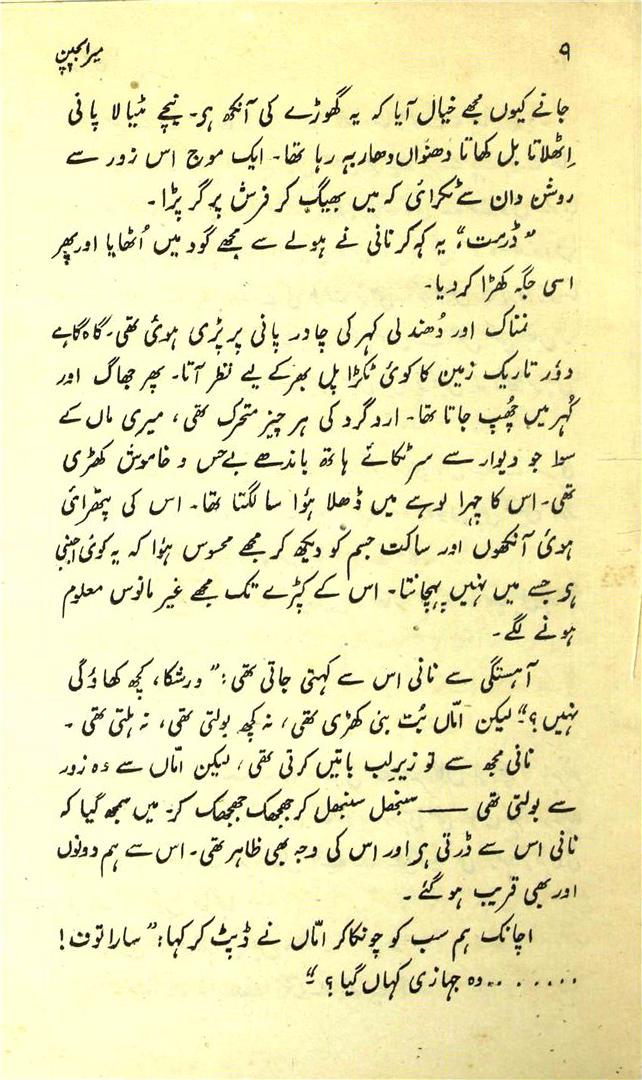 ۹ میرا بچپن
جانے کیوں مجھے خیال آیا کہ یہ گھوڑے کی آنکھ ہی۔ نیچے مٹیالا پانی
اِٹھلاتا بل کھاتا دھنواں دھار بہہ رہا تھا۔ ایک موج اس زور سے
روشن دان سے ٹکرائی کہ میں بھیگ کر فرش پر گر پڑا۔
”ڈرمت“، یہ کہہ کر نانی نے ہولے سے مجھے گود میں اُٹھایا اور پھر
اسی جگہ کھڑا کر دیا۔
نمناک اور دُھندلی کہر کی چادر پانی پر پڑی ہوئی تھی۔ گاہ گاہے
دؤر تاریک زمین کا کوئی ٹکڑا پل بھر کے لیے نظر آتا۔ پھر جھاگ اور
کُہر میں چھُپ جاتا تھا۔ اردگرد کی ہر چیز متحرک تھی، میری ماں کے
سوا جو دیوار سے سر ٹکائے ہاتھ باندھے بےحس و خاموش کھڑی
تھی۔ اس کا چہرا لوہے میں ڈھلا ہؤا سا لگتا تھا۔ اس کی پتھرائی
ہوئی آنکھوں اور ساکت جسم کو دیکھ کر مجھے محسوس ہؤا کہ یہ کوئی اجنبی
ہی جسے میں نہیں پہچانتا۔ اس کے کپڑے تک مجھے غیر مانوس معلوم
ہونے لگے۔
آہستگی سے نانی اس سے کہتی جاتی تھی: ”ورشکا، کچھ کھاؤ گی
نہیں؟“ لیکن امّاں بُت بنی کھڑی تھی، نہ کچھ بولتی تھی، نہ ہلتی تھی۔
نانی مجھ سے تو زیرِلب باتیں کرتی تھی، لیکن امّاں سے وہ زور
سے بولتی تھی —— سنبھل سنبھل کر جھجھک جھجھک کر۔ میں سمجھ گیا کہ
نانی اس سے ڈرتی ہی اور اس کی وجہ بھی ظاہر تھی۔ اس سے ہم دونوں
اور بھی قریب ہو گئے۔
اچانک ہم سب کو چونکا کر امّاں نے ڈپٹ کر کہا: ”ساراتوف!
....... وہ جہازی کہاں گیا؟“